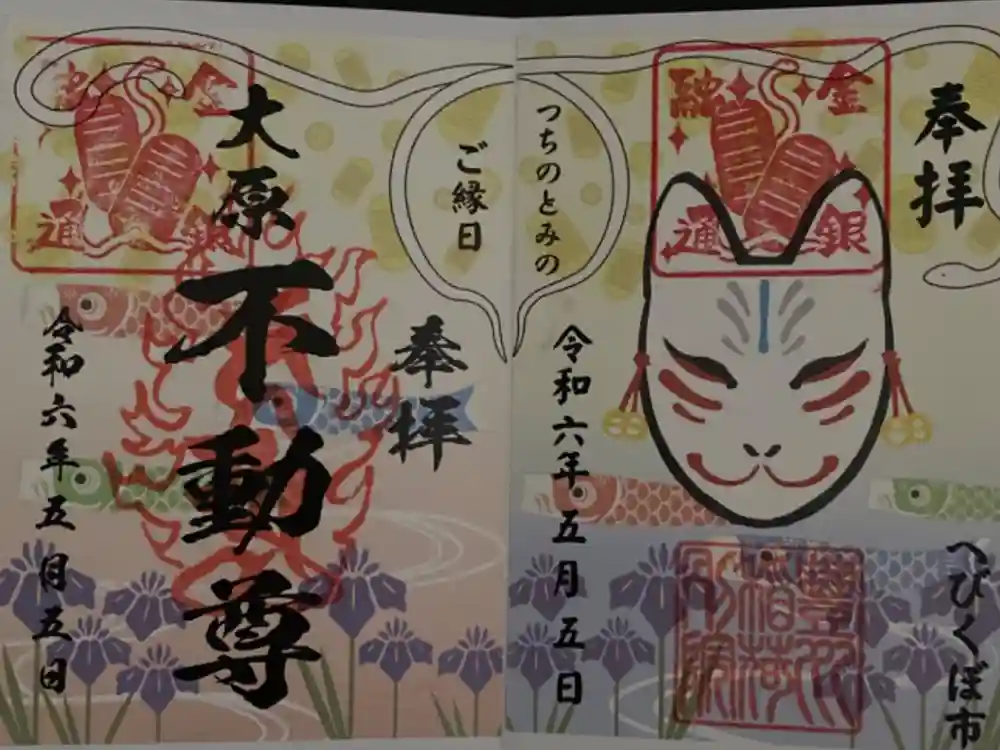 奉拝
へびくぼ市
金銀融通
つちのとみの
ご縁日
令和六年五月五日
奉拝
大原不動尊
金銀融通
令和六年五月五日